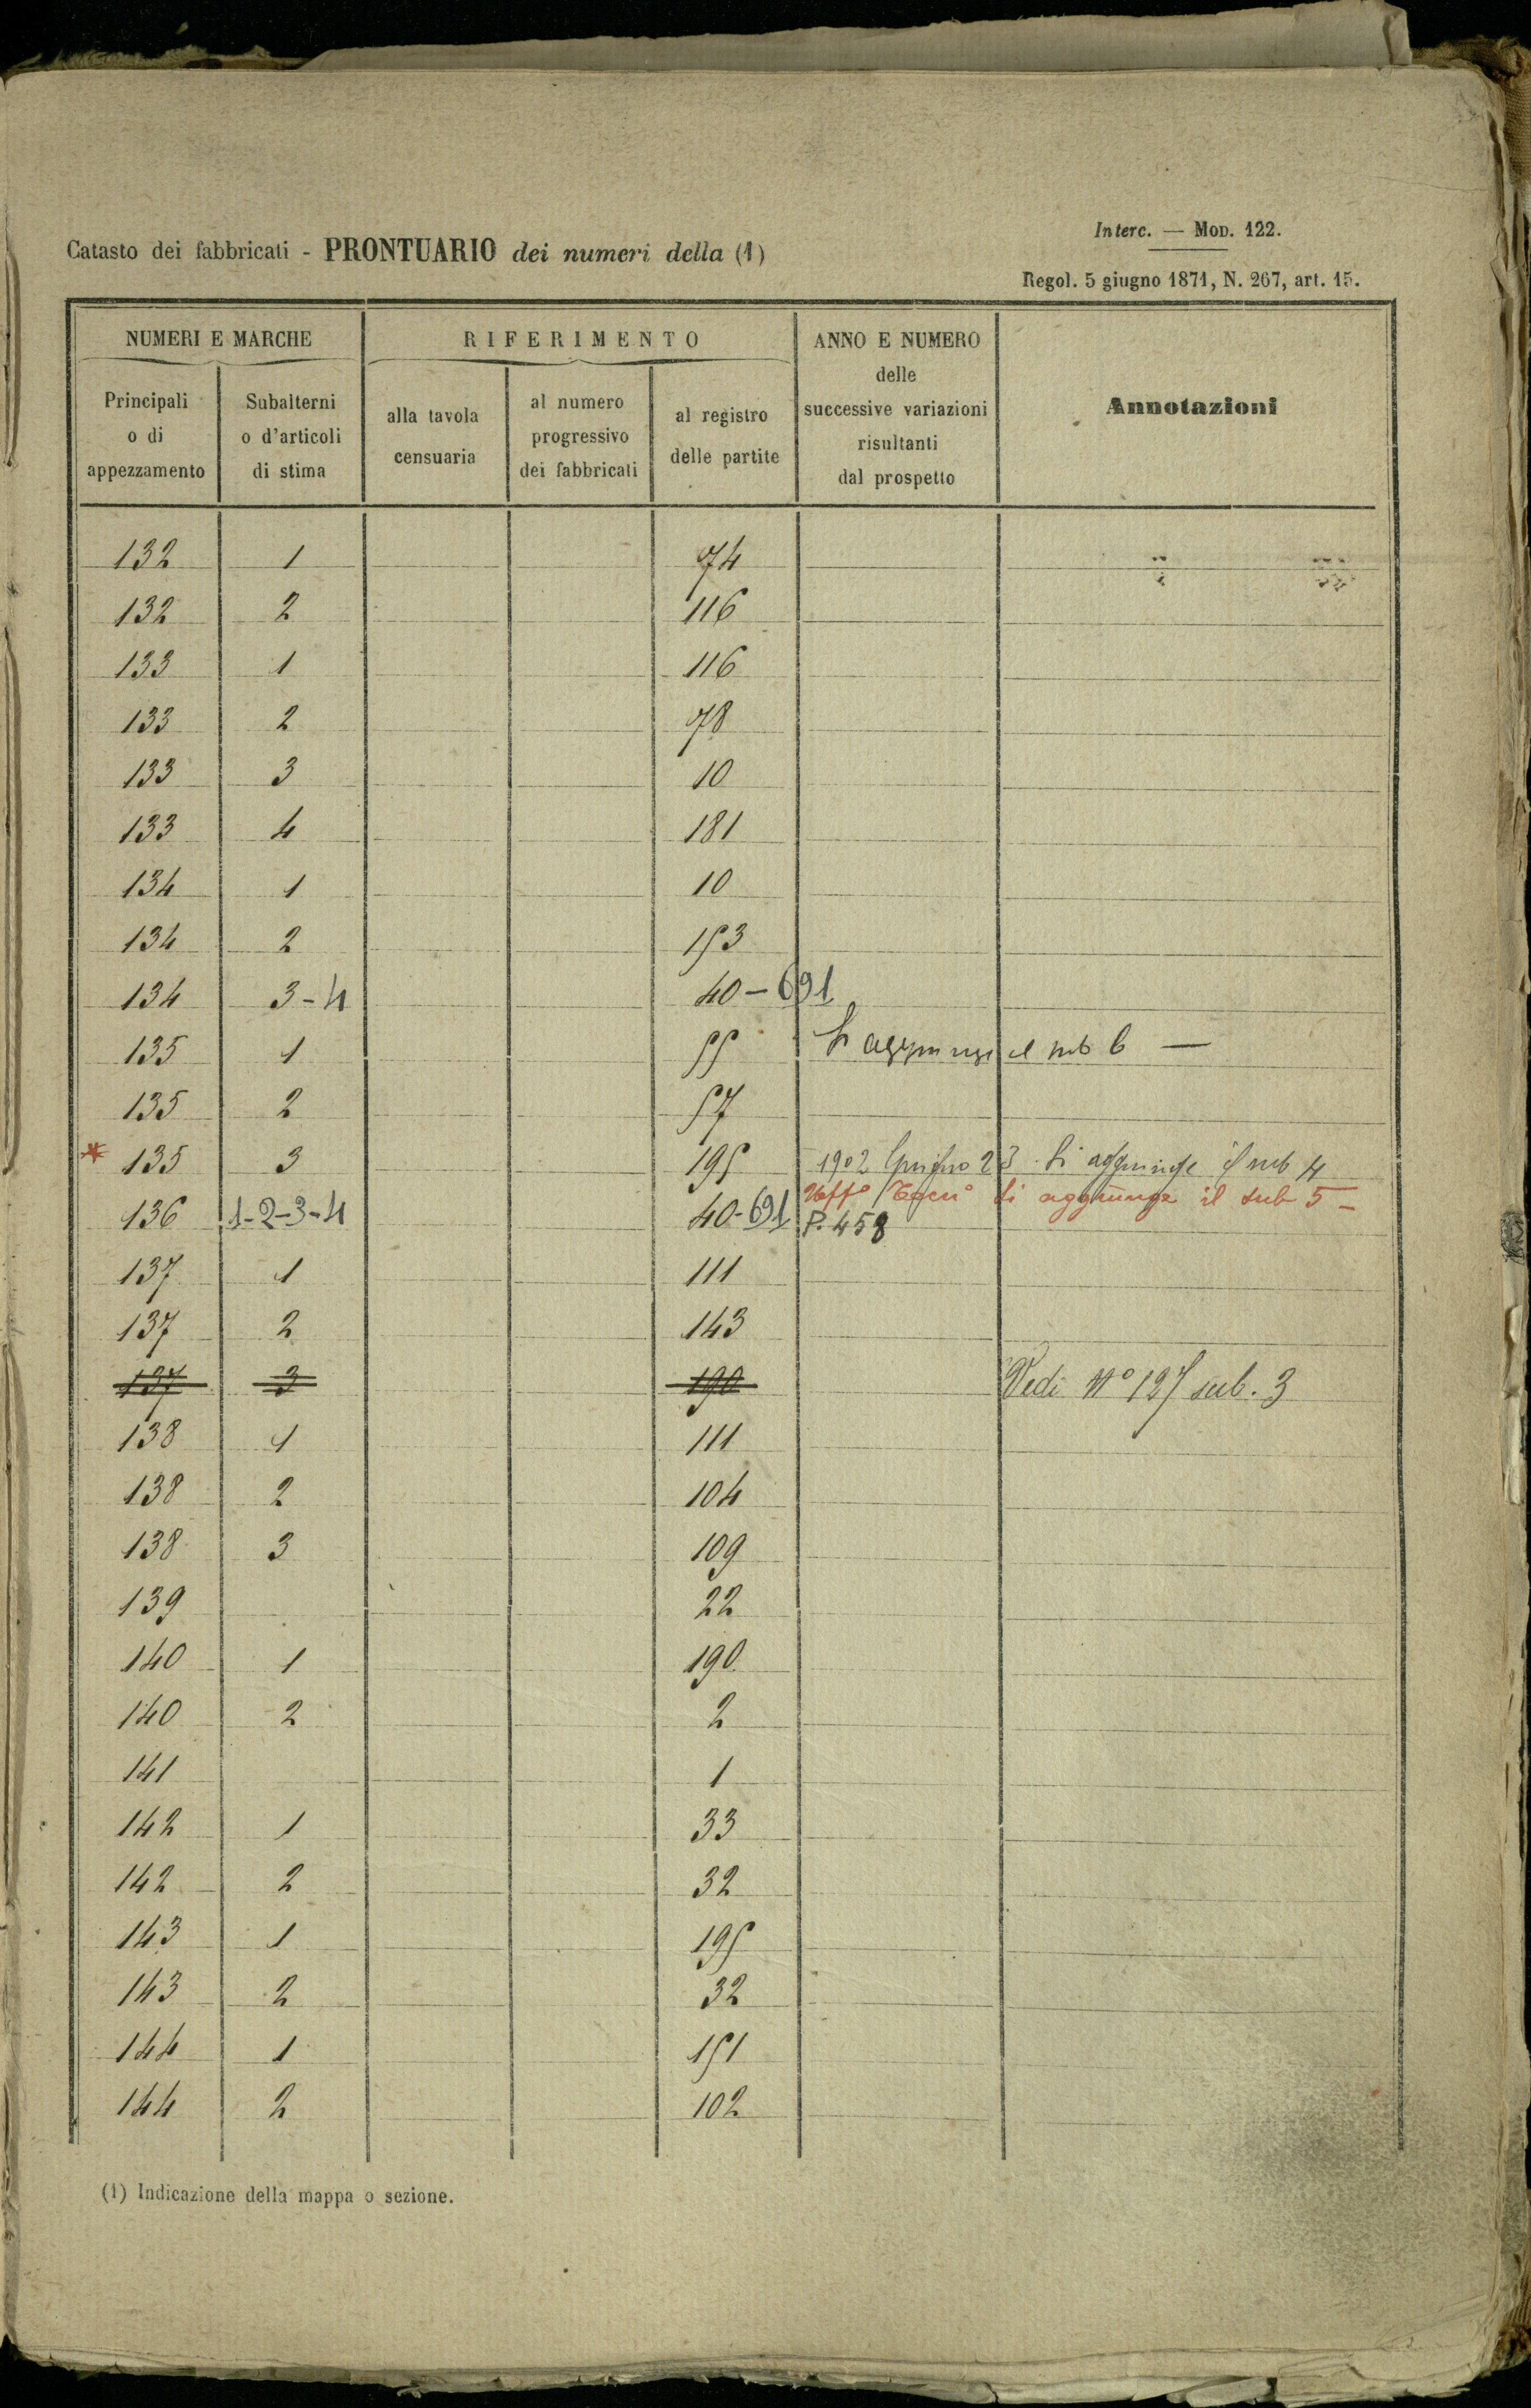 Interc. — MOD. 122.
Catasto dei fabbricati - PRONTUARIO dei numeri della (1)
Regol. 5 giugno 1871, N. 267, art. 15.
NUMERI E MARCHE
RIFERIMENTO
ANNO E NUMERO
delle
successive variazioni
risultanti
dal prospetto
Annotazioni
Principali
o di
appezzamento
Subalterni
o d'articoli
di stima
alla tavola
censuaria
al numero
progressivo
dei fabbricati
al registro
delle partite
132 1 74
132 2 116
133 1 116
133 2 78
133 3 10
133 4 181
134 1 10
134 2 153
134 3-4 40-691
135 1 55 Si aggiunge il sub 6 —
135 2 57
* 135 3 195 1902 Giugno 23 Si aggiunge il sub 4
Uffo Si aggiunge il sub 5 -
136 1-2-3-4 40-691 P. 458
137 1 111
137 2 143
137 3 190 Vedi No 127 sub. 3
138 1 111
138 2 104
138 3 109
139 22
140 1 190
140 2 2
141 1
142 1 33
142 2 32
143 1 195
143 2 32
144 1 151
144 2 102
(1) Indicazione della mappa o sezione.